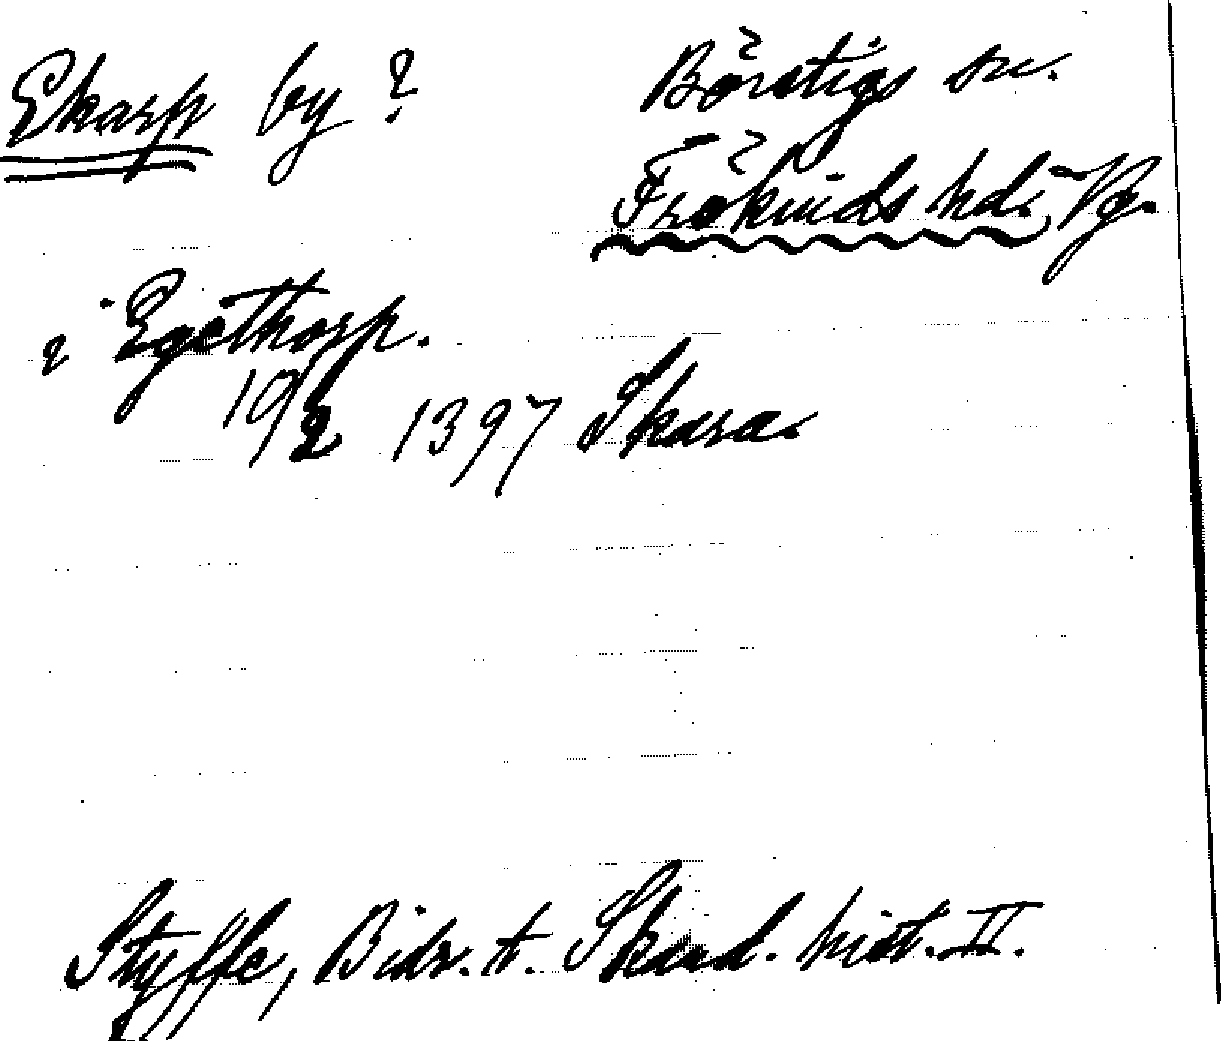 Ekarp by ?
Börstigs sn.
Frökinds hd. Vg.
i Egethorp.
10/2 1397 Skara.
Styffe, Bidr. t. Skand. hist. II.